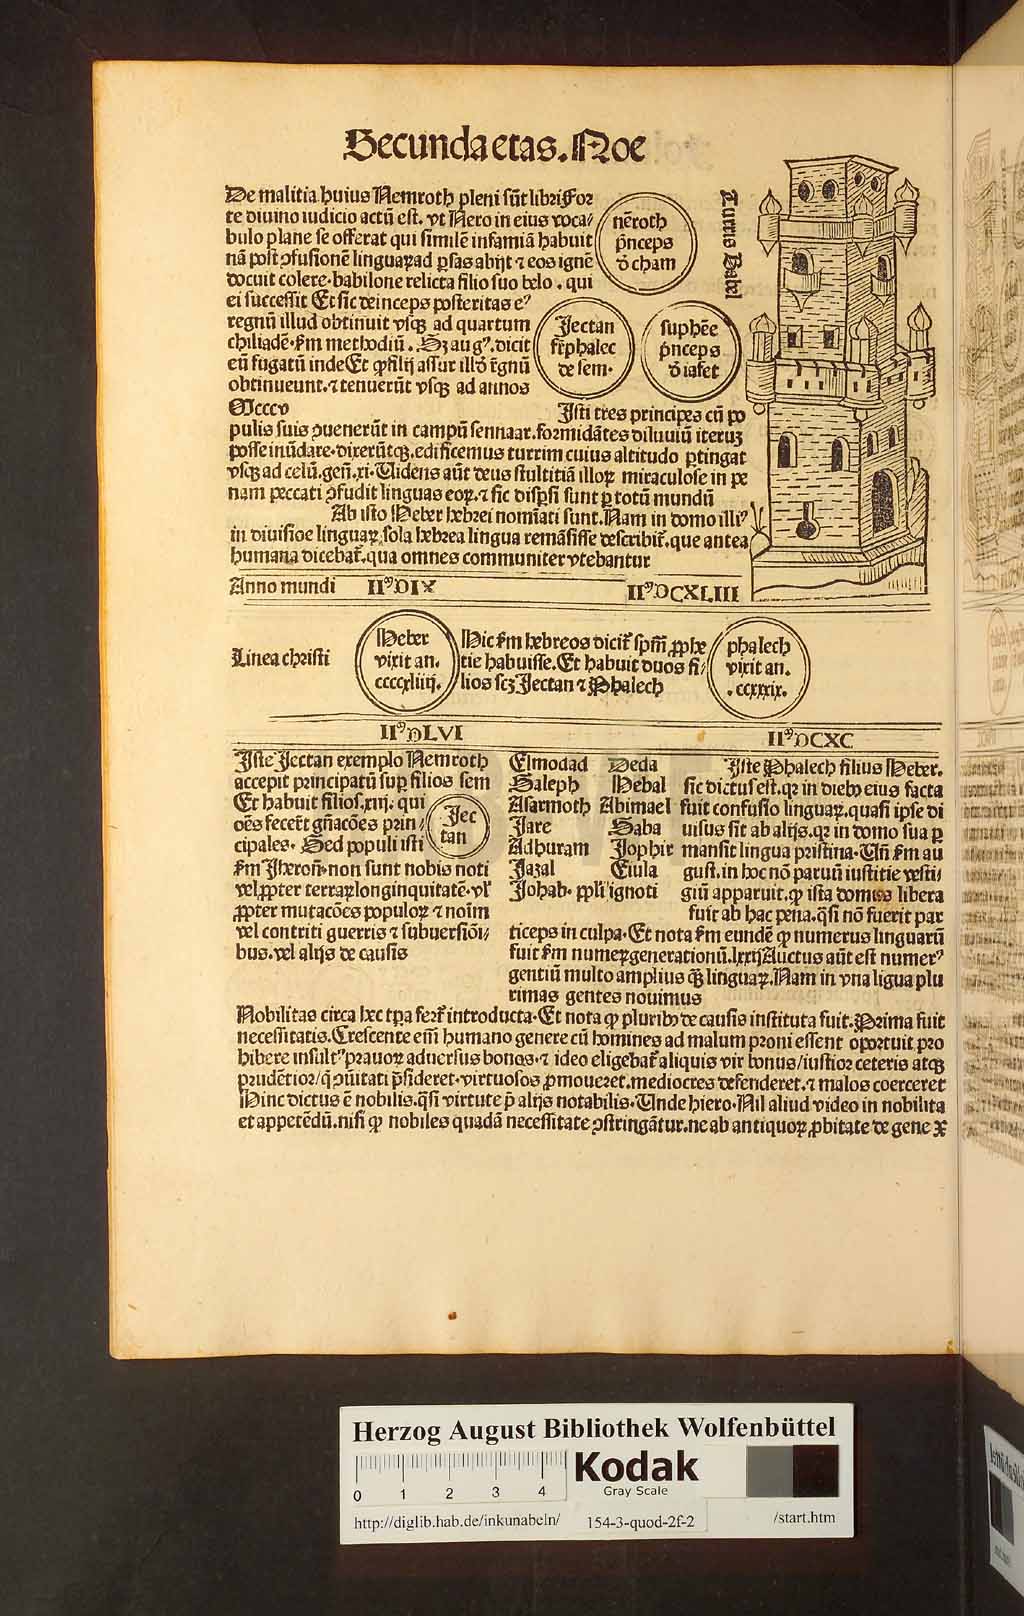 Secunda etas. Noe
De malitia huius Nemroth pleni sūt libri For
te diuino iudicio actū est. vt Nero in eius voca/
bulo plane se offerat qui similē infamiā habuit
nā post ꝯfusionē linguaꝝ ad ꝑsas abijt ⁊ eos ignē
docuit colere. babilone relicta filio suo belo. qui
ei successit Et sic deinceps posteritas eꝰ
regnū illud obtinuit vsqꝫ ad quartum
chiliadē. ẜm methodiū. Sꝫ augꝰ. dicit
eū fugatū inde Et ꝙ filij assur illđ rēgnū
obtinueunt. ⁊ tenuerūt vsqꝫ ad annos
Mccccv
nēroth
p̄nceps
đ cham
Jectan
fr̄ phalec
de sem.
suphēe
p̄nceps
đ iafet
Turris Babel
Isti tres principes cū po
pulis suis ꝯuenerūt in campū sennaar. formidātes diluuiū iteruꝫ
posse inūdare. dixerūtqꝫ. edificemus turrim cuius altitudo ꝑtingat
vsqꝫ ad celū. geñ. xi. Uidens aūt deus stultitiā illoꝝ miraculose in pe
nam peccati ꝯfudit linguas eoꝝ. ⁊ sic disꝑsi sunt ꝑ totū mundū
Ab isto Heber hebrei nomīati sunt. Nam in domo illiꝰ
in diuisiōe linguaꝝ sola hebrea lingua remāsisse describit̄. que antea
humana dicebat̄. qua omnes communiter vtebantur
Anno mundi IIꝰDIX IIꝰDCXLIII
Linea christi
Heber
vixit an.
ccccxliiij.
Hic ẜm hebreos dicit̄ spm̄ ꝓphe
tie habuisse. Et habuit duos fi/
lios scꝫ Jectan ⁊ Phalech
phalech
vixit an.
.ccxxxix.
IIꝰDLVI IIꝰDCXC
Iste Jectan exemplo Nemroth
accepit principatū suꝑ filios sem
Et habuit filios. xiij. qui
oēs fecer̄t gn̄acōes prin/
cipales. Sed populi isti
ẜm Iheroñ. non sunt nobis noti
vel ꝓpter terraꝝ longinquitatē. vl̄
ꝓpter mutacōes populoꝝ ⁊ noīm
vel contriti guerris ⁊ subuersiōi/
bus. vel alijs de causis
Jec
tan
Elmodad Deda
Saleph Hebal
Asarmoth Abimael
Jare Saba
Adhuram Jophir
Jazal Eiula
Johab. ppl̄i ignoti
Iste Phalech filius Heber.
sic dictus est. qꝛ in diebꝫ eius facta
fuit confusio linguaꝝ. quasi ipse di
uisus sit ab alijs. qꝛ in domo sua ꝑ
mansit lingua pristina. Un̄ ẜm au
gust. in hoc nō paruū iustitie vesti/
giū apparuit. ꝙ ista domus libera
fuit ab hac pena. q̄si nō fuerit par
ticeps in culpa. Et nota ẜm eundē ꝙ numerus linguarū
fuit ẜm numeꝝ generationū. lxxij Auctus aūt est numerꝰ
gentiū multo amplius qꝫ̄ linguaꝝ. Nam in vna ligua plu
rimas gentes nouimus
Nobilitas circa hec tp̄a fert̄ introducta. Et nota ꝙ pluribꝫ de causis instituta fuit. Prima fuit
necessitatis. Crescente em̄ humano genere cū homines ad malum proni essent oportuit pro
hibere insultꝰ prauoꝝ aduersus bonos. ⁊ ideo eligebat̄ aliquis vir bonus/iustior ceteris atqꝫ
prudētior/q̇ ꝯūitati p̄sideret. virtuosos ꝓmoueret. mediocres defenderet. ⁊ malos coerceret
Hinc dictus ē nobilis. q̄si virtute p̄ alijs notabilis. Unde hiero. Nil aliud video in nobilita
et appetēdū. nisi ꝙ nobiles quadā necessitate ꝯstringātur. ne ab antiquoꝝ ꝓbitate de gene x
Herzog August Bibliothek Wolfenbüttel
0 1 2 3 4
Kodak
Gray Scale
http://diglib.hab.de/inkunabeln/ 154-3-quod-2f-2 /start.htm